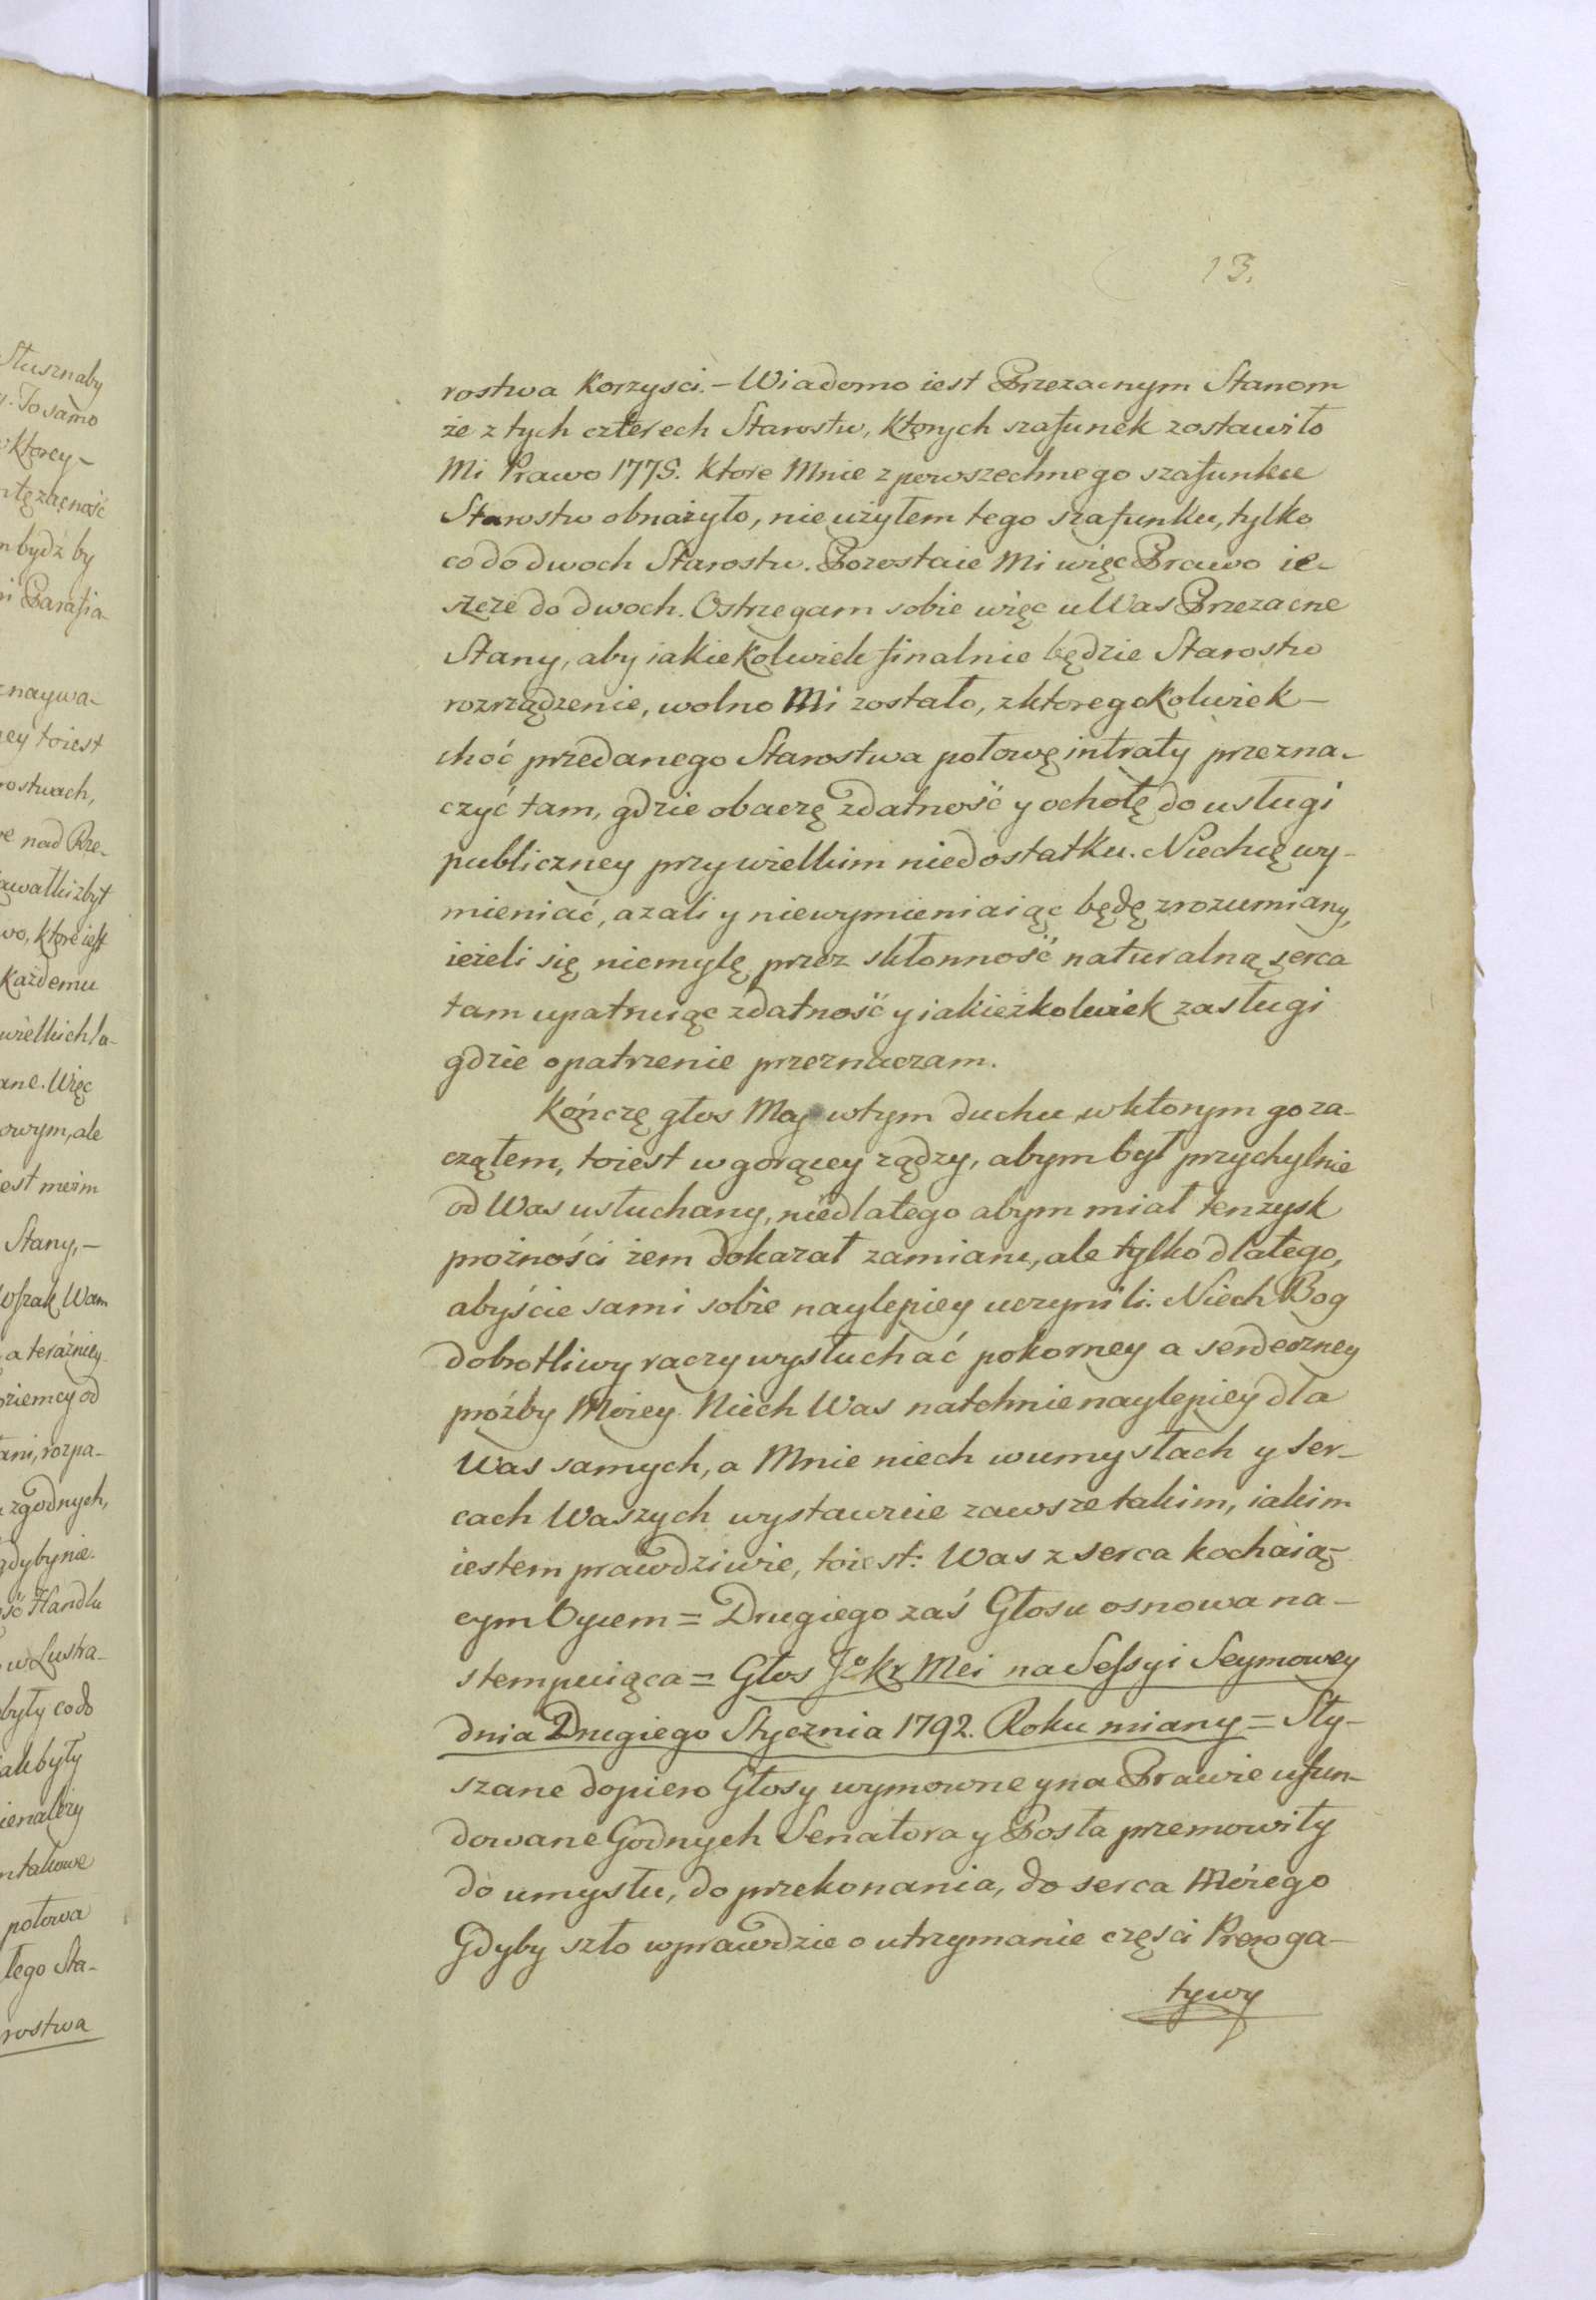 13.
rostwa Korzysci. – Wiadomo iest Przezacnym Stanom
że z tych czterech Starostw, ktorych szafunek zostawiło
Mi Prawo 1775. Ktore Mnie z powszechnego szafunku
Starostw obnażyło, nie użyłem tego szafunku, tylko
co do dwoch Starostw. Pozostaie Mi więc Prawo ie-
szcze do dwoch. Ostrzegam sobie więc u Was Przezacne
Stany, aby iakiekolwiek finalnie będzie Starostw
rozrządzenie, wolno Mi zostało, z ktoregokolwiek –
choć przedanego Starostwa połowę intraty przezna-
czyć tam, gdzie obaczę zdatność y ochotę do usługi
publiczney przy wielkim niedostatku. Niechcę wy-
mieniać, azali y niewymieniaiąc będę zrozumiany,
ieżeli się niemylę przez skłonność naturalną serca
tam upatruiąc zdatność y iakieżkolwiek zasługi
gdzie opatrzenie przeznaczam.
Kończę głos Moy w tym duchu w ktorym go za-
cząłem, toiest w gorącey rządzy, abym był przychylnie
od Was usłuchany, niedlatego abym miał ten zysk
prożności żem dokazał zamiaru, ale tylko dlatego,
abyście sami sobie naylepiey uczynili. Niech Bog
dobrotliwy raczy wysłuchać pokorney a serdeczney
próźby Moiey. Niech Was natchnie naylepiey dla
Was samych, a Mnie niech w umysłach y ser-
cach Waszych wystawuie zawsze takim, iakim
iestem prawdziwie, toiest: Was z serca kochaią-
cym Oycem = Drugiego zaś Głosu osnowa na-
stempuiąca = Głos JoKr Mci na Sessyi Seymowey
dnia Drugiego Stycznia 1792. Roku miany = Sły-
szane dopiero Głosy wymowne y na Prawie ufun-
dowane Godnych Senatora y Posła przemowiły
do umysłu, do przekonania, do serca Moiego
Gdyby szło wprawdzie o utrzymanie części Preroga-
tywy
Słuszna by
To samo
ktorey –
zacność
bydź by
Parafia-
naywa-
ey toiest
rostwach,
nad Rze-
zbyt
wo, ktore iest
Każdemu
wielkich la-
ane. Więc
owym, ale
est meżm
Stany, –
Wszak Wam
a teraźniey
ziemcy od
ani, rozpa-
zgodnych,
gdyby nie
ść Handlu
w Lustra-
były co do
ak były
ienależy
ntakowe
połowa
tego Sta-
rostwa